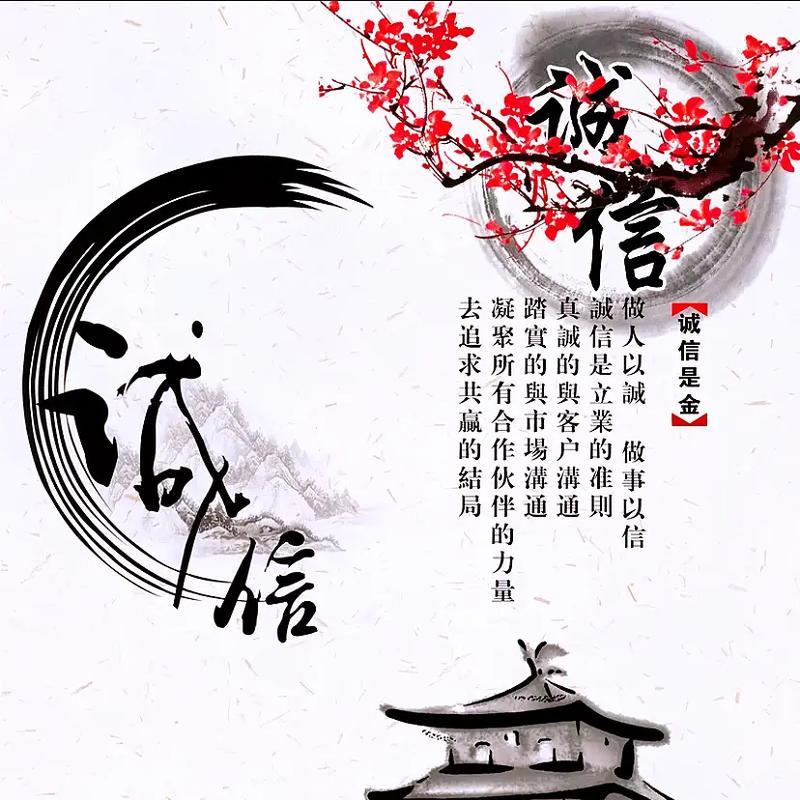 誠信
诚信是金
做人以誠 做事以信
誠信是立業的准則
真誠的與客户溝通
踏實的與市場溝通
凝聚所有合作伙伴的力量
去追求共贏的結局
诚信